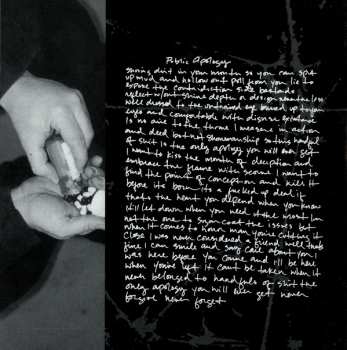 Public Apology
saving dirt in your mouth so you can spit
up mud and hollow out doll from you lie to
expose the contradiction side bastards
reflect without shine depth or design
well dressed to the untrained eye buried up to your
eyes and comfortable with disguise
is no fire to the throne I measure in action
and deed but not showmanship so this handful
of shit is the only apology you will ever get
I want to kiss the mouth of deception and
embrace the flame with scorn I want to
find the point of conception and kill it
before its born its a fucked up deal if
thats the heart you depend when you know
itll let down when you need it the most Im
not the one to sugarcoat the issues but
when it comes to honor man you're cutting it
close I was never considered a friend well thats
fine I can smile and say I care about you I
was here before you came and ill be here
when you've left it cant be taken when it
never belonged to handfuls of shit the
only apology you will ever get never
forgive never forget